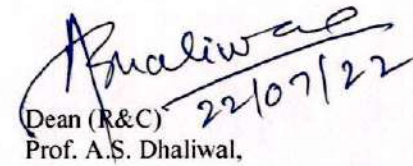 Dhaliwal
22/07/22
Dean (R&C)
Prof. A.S. Dhaliwal,